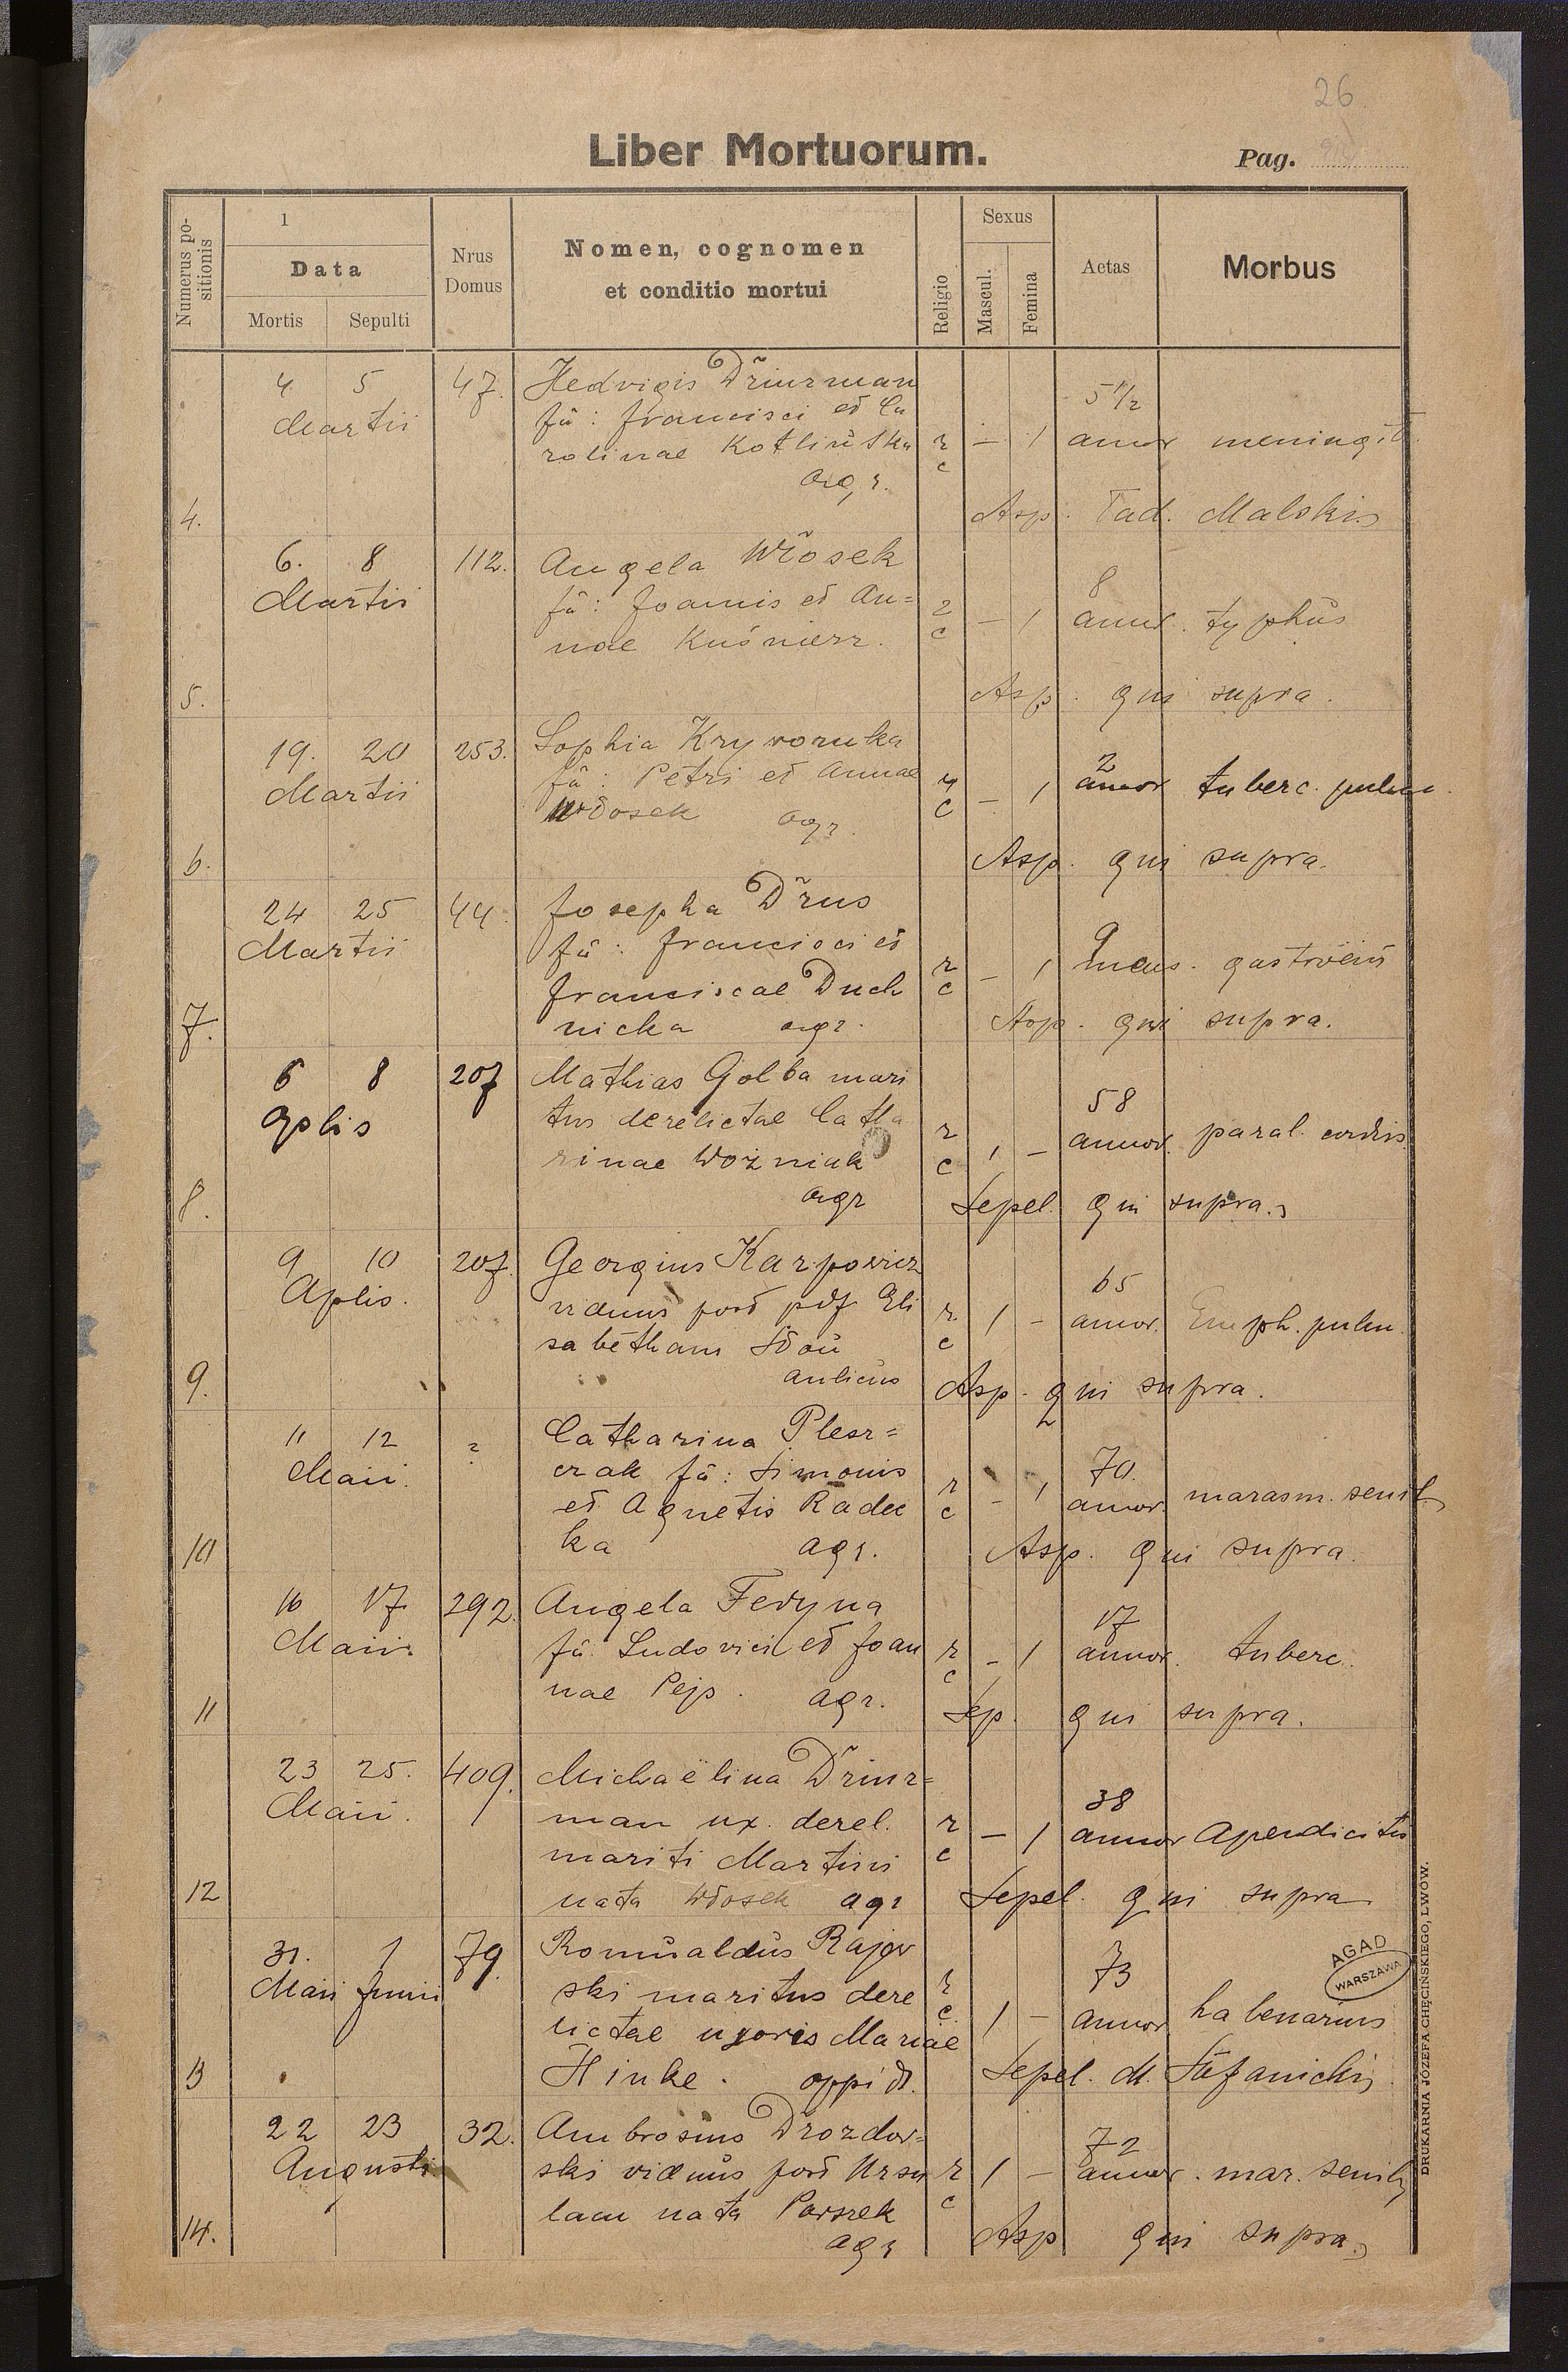 26.
Liber Mortuorum.
Pag.
Numerus positionis
1
Data
Mortis Sepulti
Nrus Domus
Nomen, cognomen
et conditio mortui
Religio
Sexus
Mascul. Femina
Aetas
Morbus
4 5 47. Hedvigis Dziurzman
Martii fa: Francisci et Ca
rolinae Kotlińska r c – 1 5 1/2 annor meningit.
agr.
4. Asp. Tad. Malskis
6. 8 112. Angela Włosek
Martii fa: Joannis et An=
nae Kuśnierz. r c – 1 8 annor. typhus
5. Asp. qui supra.
19. 20 253. Sophia Kryworuka
Martii fa: Petri et Annae r c – 1 2 annor tuberc. pulm.
Włosek agr.
6. Asp. qui supra.
24 25 44. Josepha Drus
Martii fa: Francisci et
Franciscae Duch r c – 1 9 mens. gastroen
7. nicka agr. Asp. qui supra.
6 8 207 Mathias Golba mari
Aplis tus derelictae Catha
rinae Woźniak r c 1 – 58 annor. paral. cordis
8. agr Sepel. qui supra.
9 10 207. Georgius Karpowicz
Aplis. viduus post pdf Eli r. c 1 – 65 annor. Emph. pulm.
sabetham Słoń
9. aulicus Asp. qui supra.
11 12 ? Catharina Plesz=
Maii. czak fa: Simonis
et Agnetis Radec r c – 1 70. annor. marasm. senil
10 ka agr. Asp. qui supra.
16 17 292. Angela Fedyna
Maii. fa. Ludovici et Joan r c – 1 17 annor. tuberc.
nae Pejs. agr.
11 Sep. qui supra.
23 25. 409. Michaëlina Dziurz=
Maii. man ux. derel. r c – 1 38 annor Apendicitis
mariti Martini
12 nata Włosek agr Sepel. qui supra
31. 1 79. Romualdus Rajew
Maii Junii ski maritus dere r c. 1 – 73 annor habenarius
lictae uxoris Mariae
13 Hinke. oppid. Sepel. M. Stefanickis
22 23 32. Ambrosius Drozdow=
Augusti ski viduus post Ursu r c 1 – 72 annor. mar. senil
lam nata Parszek
14. agr Asp qui supra
AGAD
WARSZAWA
DRUKARNIA JÓZEFA CHĘCIŃSKIEGO, LWÓW.